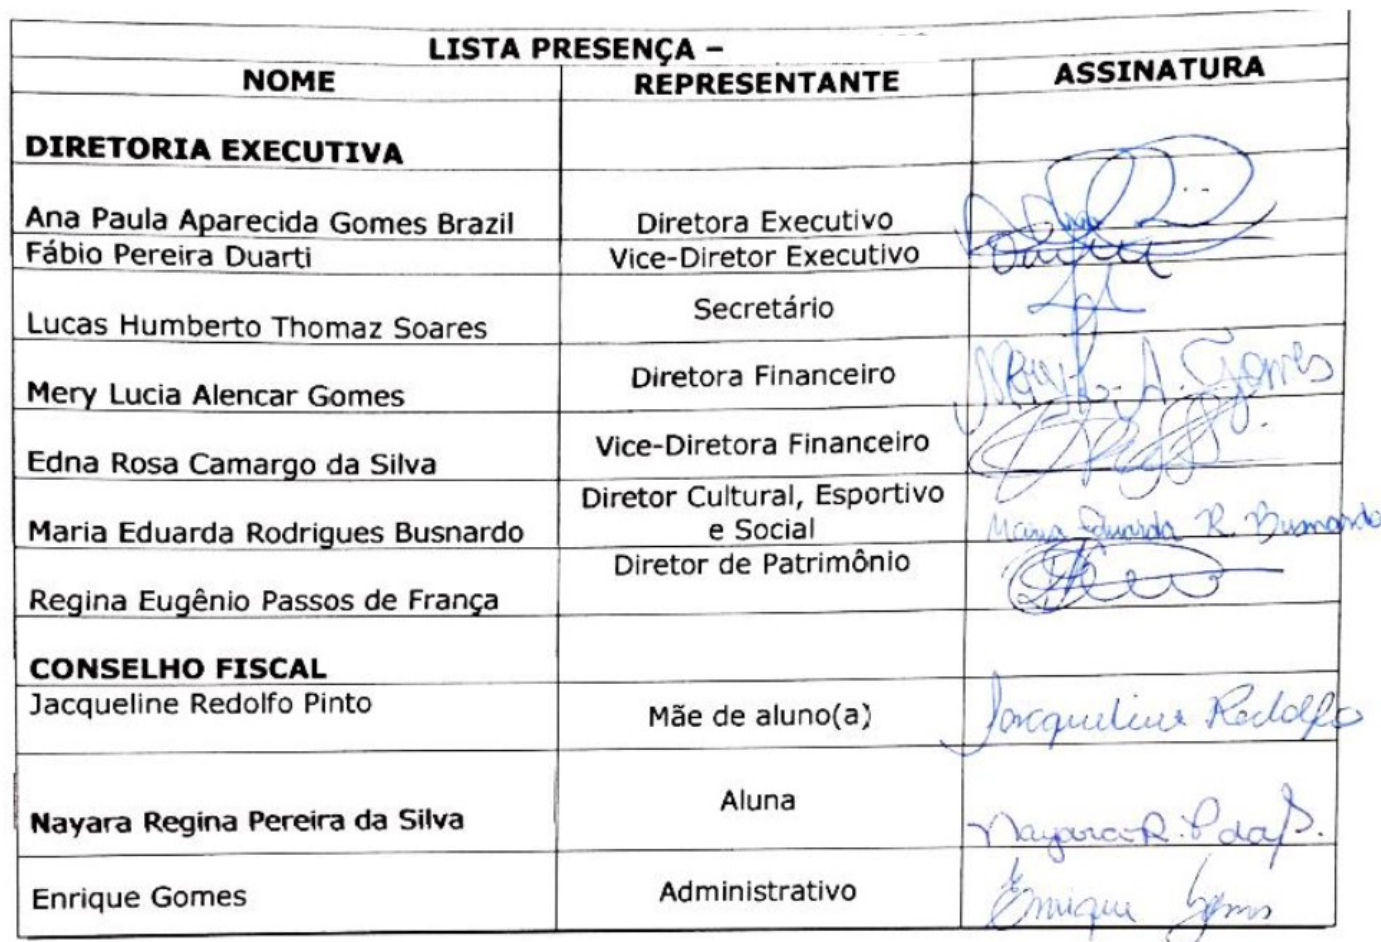 LISTA PRESENÇA –
NOME REPRESENTANTE ASSINATURA
DIRETORIA EXECUTIVA
Ana Paula Aparecida Gomes Brazil Diretora Executivo
Fábio Pereira Duarti Vice-Diretor Executivo
Lucas Humberto Thomaz Soares Secretário
Mery Lucia Alencar Gomes Diretora Financeiro Mery L. A. Gomes
Edna Rosa Camargo da Silva Vice-Diretora Financeiro
Maria Eduarda Rodrigues Busnardo Diretor Cultural, Esportivo
e Social Maria Eduarda R. Busnardo
Regina Eugênio Passos de França Diretor de Patrimônio
CONSELHO FISCAL
Jacqueline Redolfo Pinto Mãe de aluno(a) Jacqueline Redolfo
Nayara Regina Pereira da Silva Aluna Nayara R. P. da S.
Enrique Gomes Administrativo Enrique Gomes